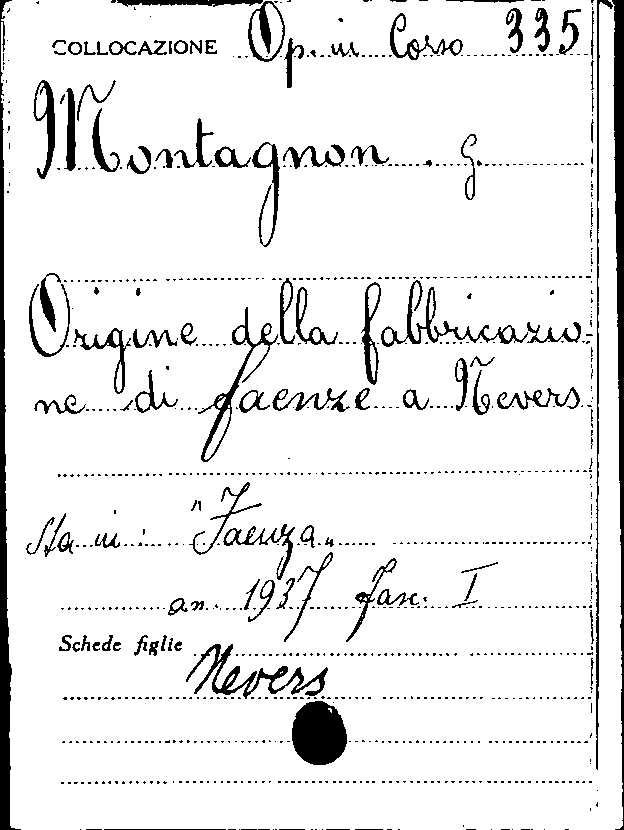 COLLOCAZIONE Op. in Corso 335
Montagnon . G.
Origine della fabbricazio
ne di faenze a Nevers
sta in: "Faenza"
an. 1937 fasc. I
Schede figlie
Nevers